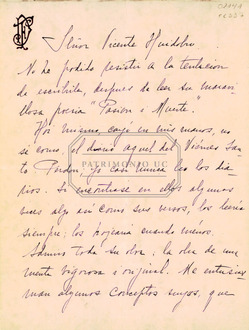 Señor Vicente Huidobro
No he podido resistir a la tentacion
de escribirle, despues de leer su maravi-
llosa poesia "Pasion i Muerte".
Hoi mismo cayó en mis manos, no
sé como, el diario aquel del Viernes San-
to. Perdon; yo casi nunca leo los dia-
rios. Si encontrase en ellos algunas
veces algo así como sus versos, los leería
siempre; los hojearía cuando menos.
Admiro toda su obra; la obra de una
mente vigorosa i orijinal. Me entusias-
man algunos conceptos suyos, que
PATRIMONIO UC